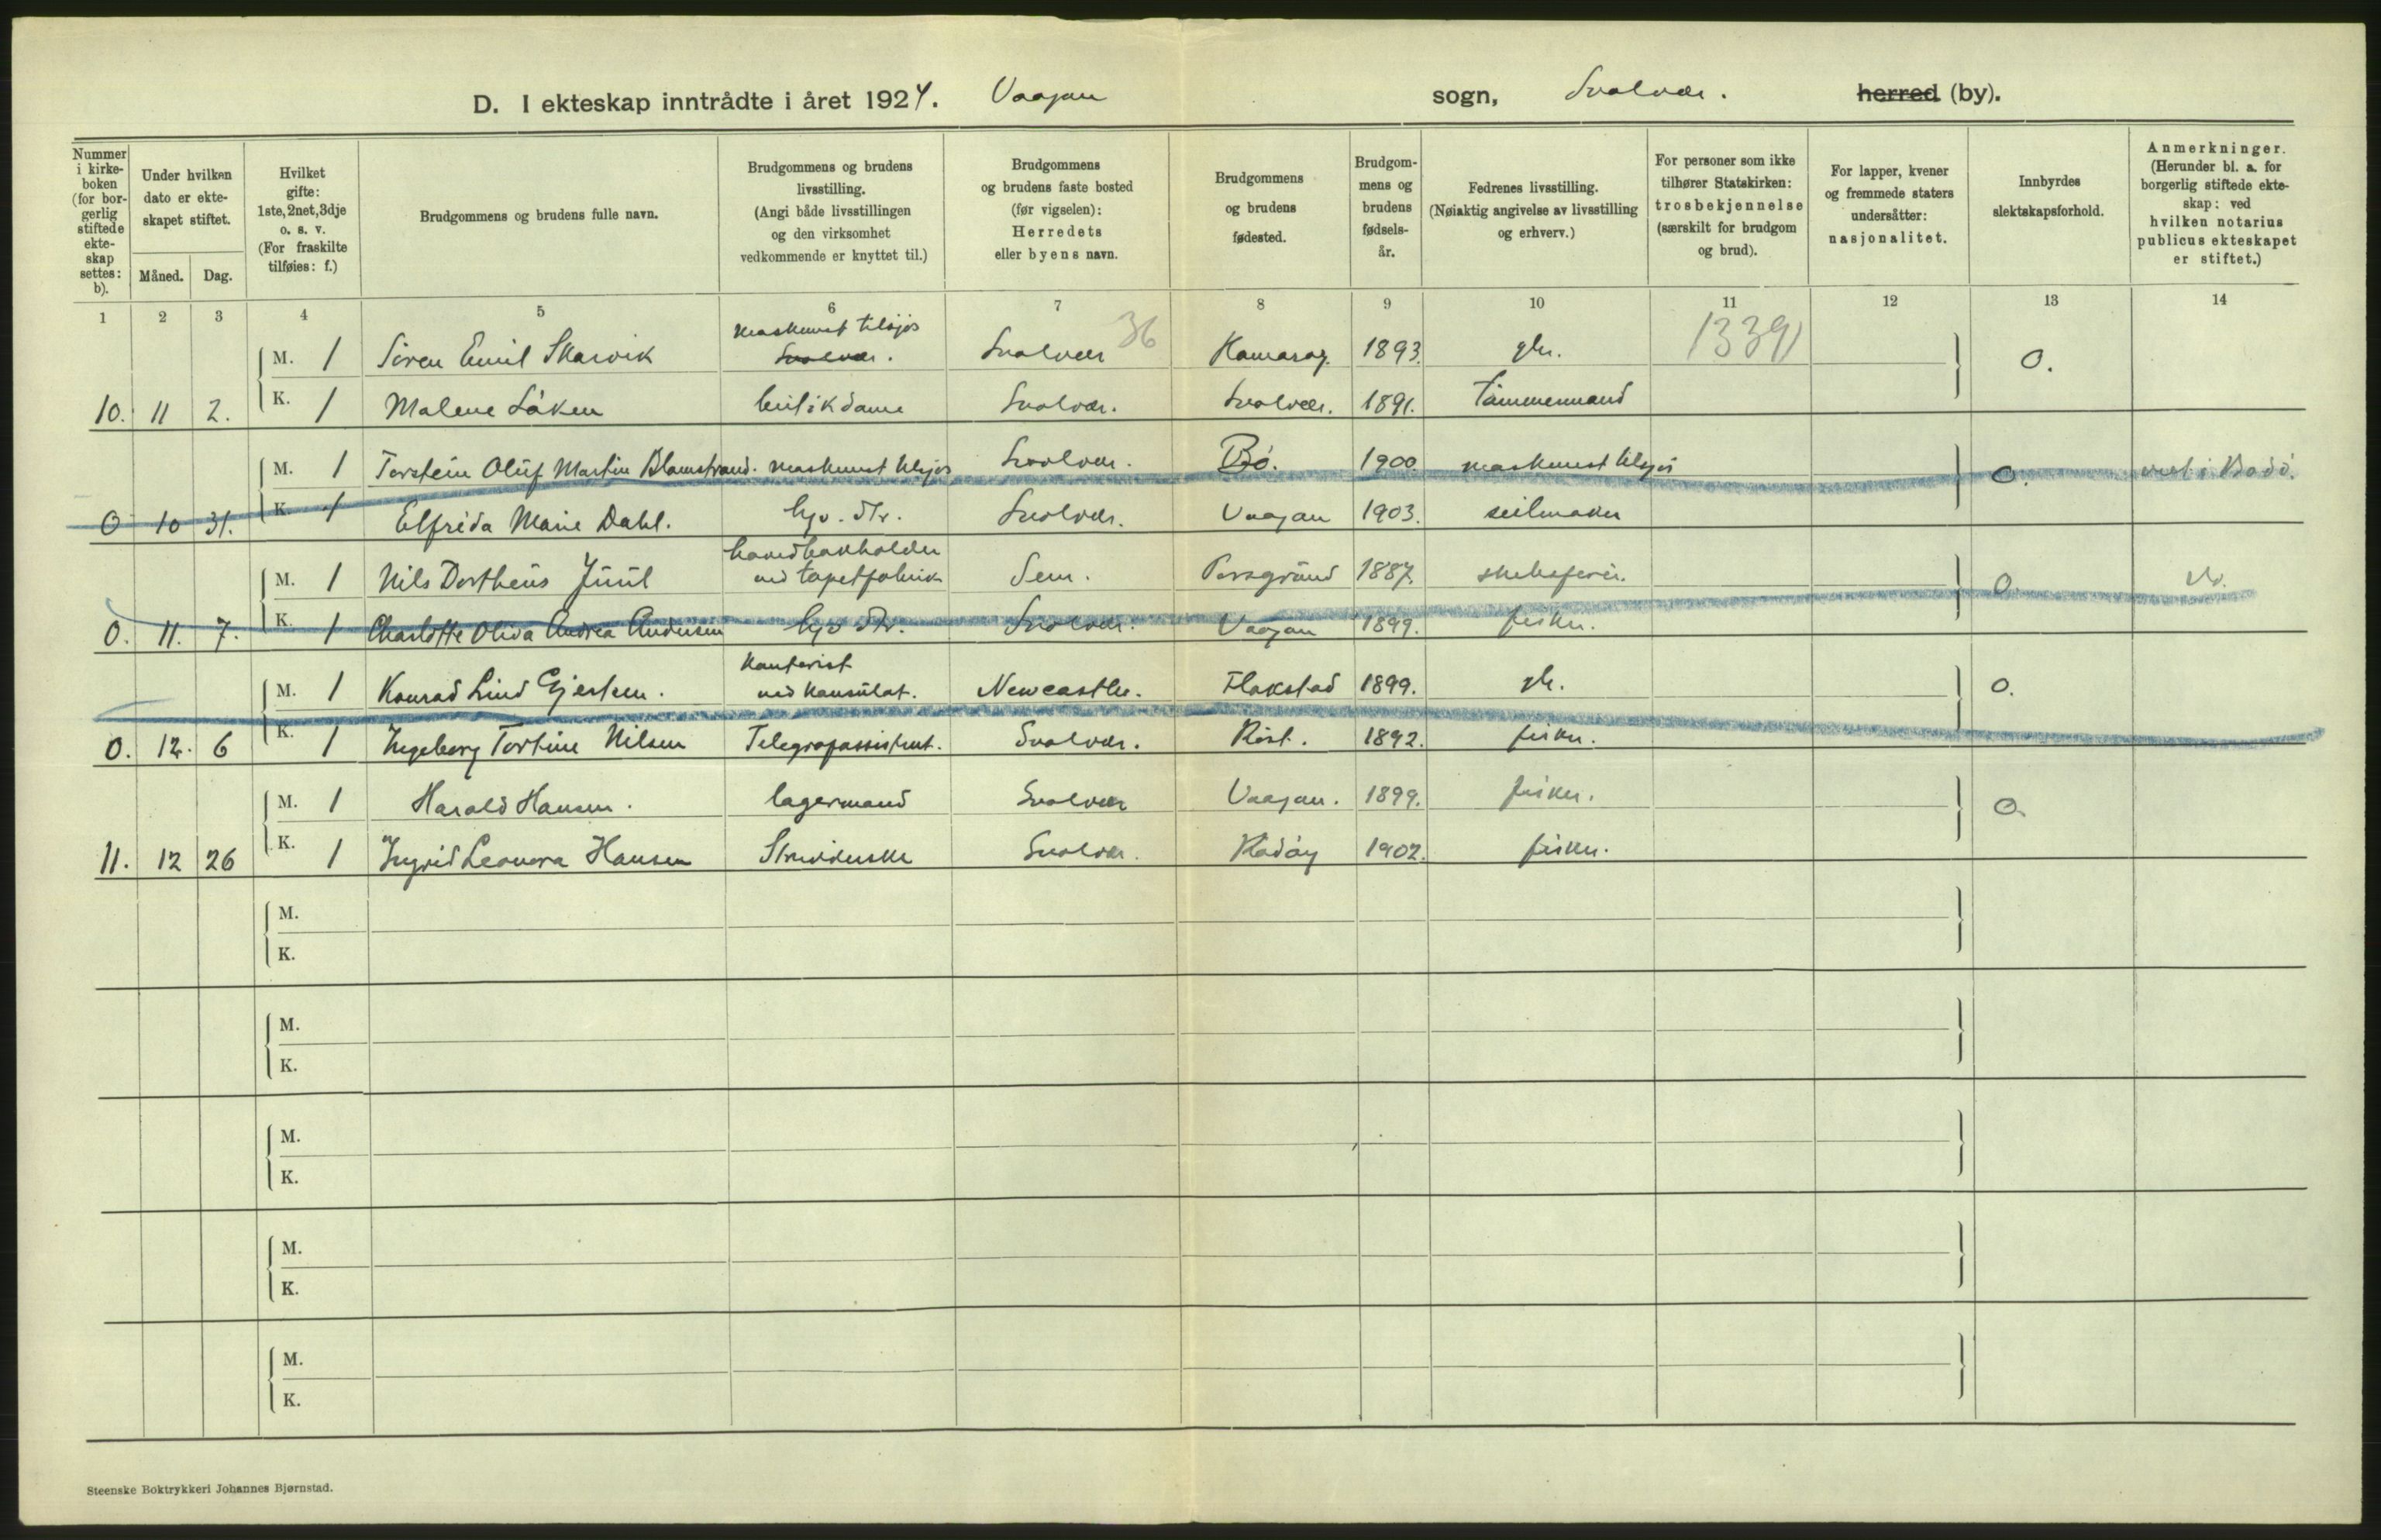 D. I ekteskap inntrådte i året 1924. Vaagan sogn, Svolvær. herred (by).
Nummer i kirkeboken (for borgerlig stiftede ekteskap settes: b).
Under hvilken dato er ekteskapet stiftet.
Måned. Dag.
Hvilket gifte: 1ste, 2net, 3dje o. s. v. (For fraskilte tilføies: f.)
Brudgommens og brudens fulle navn.
Brudgommens og brudens livsstilling. (Angi både livsstillingen og den virksomhet vedkommende er knyttet til.)
Brudgommens og brudens faste bosted (før vigselen): Herredets eller byens navn.
Brudgommens og brudens fødested.
Brudgommens og brudens fødselsår.
Fedrenes livsstilling. (Nøiaktig angivelse av livsstilling og erhverv.)
For personer som ikke tilhører Statskirken: trosbekjennelse (særskilt for brudgom og brud).
For lapper, kvener og fremmede staters undersåtter: nasjonalitet.
Innbyrdes slektskapsforhold.
Anmerkninger. (Herunder bl. a. for borgerlig stiftede ekteskap: ved hvilken notarius publicus ekteskapet er stiftet.)
1 2 3 4 5 6 7 8 9 10 11 12 13 14
maskinist tilsjös
M. 1 Sören Emil Skarvik Svolvær. Svolvær 36 Hamarøy. 1893. 1339 0.
10. 11 2. K. 1 Malene Löken butikdame Svolvær. Svolvær. 1891. tömmermand
M. 1 Torstein Oluf Martin Blomstrand. maskinist tilsjös Svolvær. Bö. 1900 maskinist tilsjös 0. viet i Bodö.
0 10 31. K. 1 Elfrida Marie Dahl. hjv. dtr. Svolvær. Vaagan 1903. seilmaker
hovedbokholder
M. 1 Nils Dortheus Juul ved tapetfabrik Sem. Porsgrund 1887. 0. do.
0. 11. 7. K. 1 Charlotte Oliva Andrea Andersen hjv dtr. Svolvær. Vaagan 1899. fisker.
Kontorist
M. 1 Konrad Lind Gjertsen. ved konsulat. Newcastle. Flakstad 1899. 0.
0. 12. 6 K. 1 Ingeborg Tortine Nilsen Telegrafassistent. Svolvær. Röst. 1892. fisker.
M. 1 Harald Hansen. lagermand Svolvær Vaagan. 1899. fisker. 0.
11. 12 26 K. 1 Ingrid Leonora Hansen Svolvær. Rödöy 1902. fisker.
M.
K.
M.
K.
M.
K.
M.
K.
M.
K.
Steenske Boktrykkeri Johannes Bjørnstad.